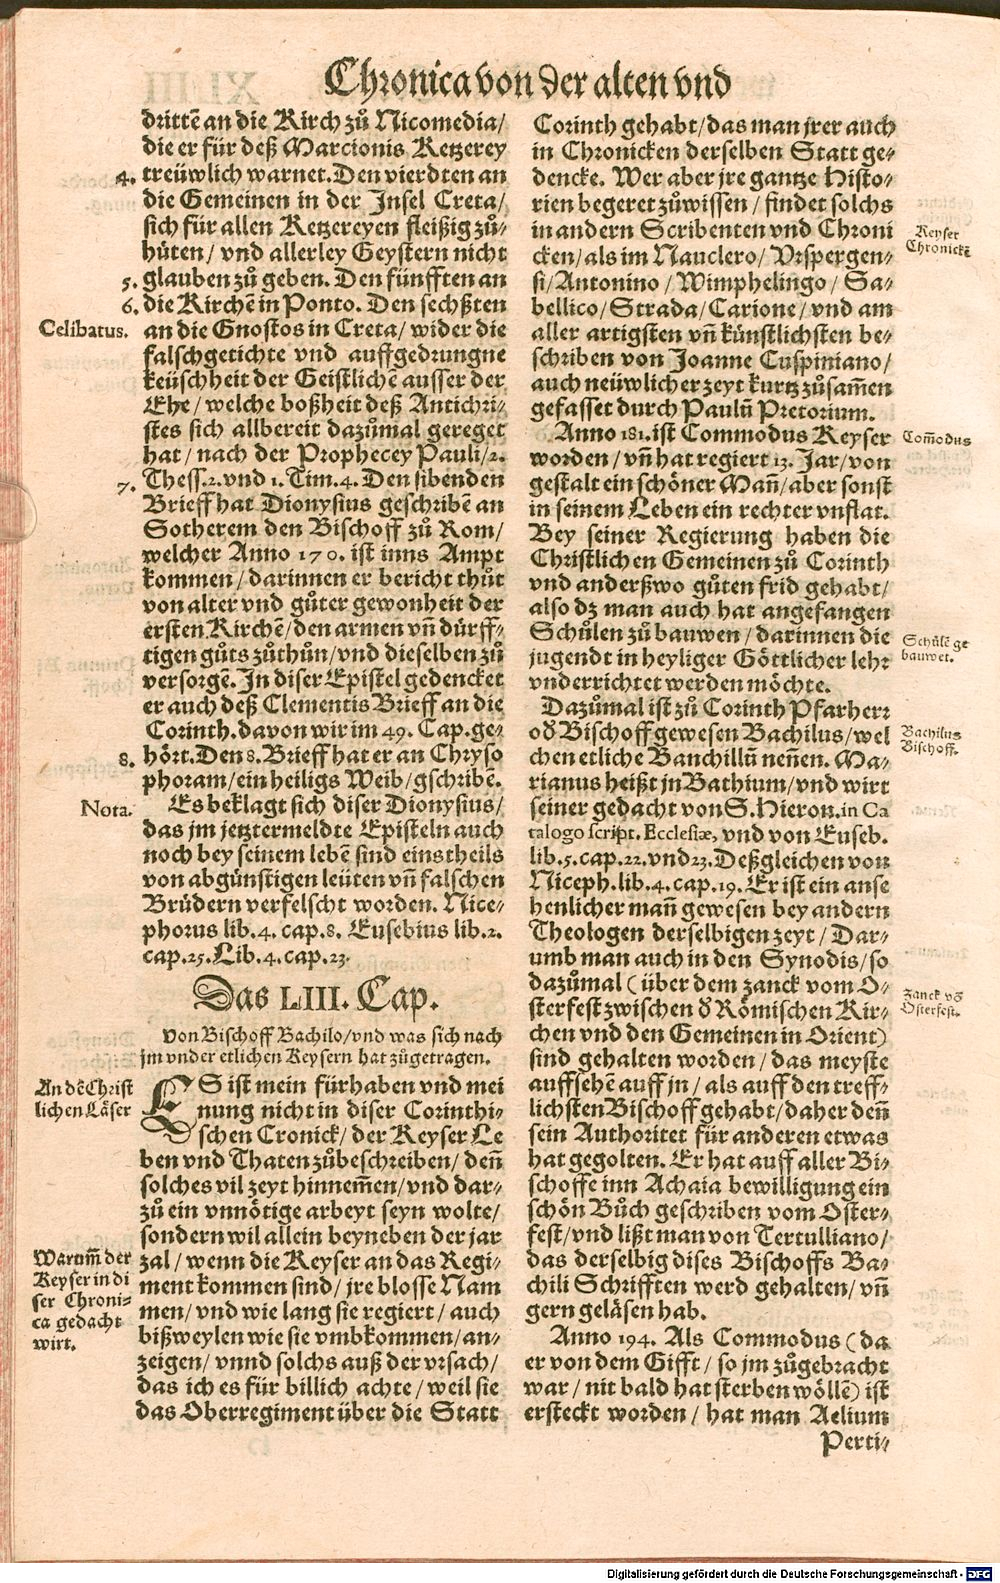 Chronica von der alten vnd
drittẽ an die Kirch zů Nicomedia/
die er für deß Marcionis Ketzerey
4. treüwlich warnet. Den vierdten an
die Gemeinen in der Insel Creta/
sich für allen Ketzereyen fleißig zů-
hüten/ vnd allerley Geystern nicht
5. glauben zů geben. Den fünfften an
6. die Kirchẽ in Ponto. Den sechßten
Celibatus. an die Gnostos in Creta/ wider die
falschgetichte vnd auffgedrungne
keüschheit der Geistlichẽ ausser der
Ehe/ welche boßheit deß Antichri-
stes sich allbereit dazůmal gereget
hat/ nach der Prophecey Pauli/ 2.
7. Thess. 2. vnd 1. Tim. 4. Den sibenden
Brieff hat Dionysius geschribẽ an
Sotherem den Bischoff zů Rom/
welcher Anno 170. ist inns Ampt
kommen/ darinnen er bericht thůt
von alter vnd gůter gewonheit der
ersten Kirchẽ/ den armen vñ dürff-
tigen gůts zůthůn/ vnd dieselben zů
versorgẽ. In diser Epistel gedencket
er auch deß Clementis Brieff an die
Corinth. davon wir im 49. Cap. ge-
8. hört. Den 8. Brieff hat er an Chryso
phoram/ ein heiligs Weib/ gschribẽ.
Nota. Es beklagt sich diser Dionysius/
das jm jetztermeldte Episteln auch
noch bey seinem lebẽ sind einstheils
von abgünstigen leüten vñ falschen
Brüdern verfelscht worden. Nice-
phorus lib. 4. cap. 8. Eusebius lib. 2.
cap. 25. Lib. 4. cap. 23.
Das LIII. Cap.
Von Bischoff Bachilo/ vnd was sich nach
jm vnder etlichen Keysern hat zůgetragen.
An dẽ Christ
lichen Läser
ES ist mein fürhaben vnd mei
nung nicht in diser Corinthi-
schen Cronick/ der Keyser Le
ben vnd Thaten zůbeschreiben/ deñ
solches vil zeyt hinnem̃en/ vnd dar-
zů ein vnnötige arbeyt seyn wolte/
sondern wil allein beyneben der jar
Warum̃ der
Keyser in di
ser Chroni-
ca gedacht
wirt.
zal/ wenn die Keyser an das Regi-
ment kommen sind/ jre blosse Nam
men/ vnd wie lang sie regiert/ auch
bißweylen wie sie vmbkommen/ an-
zeigen/ vnnd solchs auß der vrsach/
das ich es für billich achte/ weil sie
das Oberregiment über die Statt
Corinth gehabt/ das man jrer auch
in Chronicken derselben Statt ge-
dencke. Wer aber jre gantze Histo-
rien begeret zůwissen/ findet solchs
in andern Scribenten vnd Chroni
Keyser
Chronickẽ
cken/ als im Nauclero/ Vrspergen-
si/ Antonino/ Wimphelingo/ Sa-
bellico/ Strada/ Carione/ vnd am
aller artigsten vñ künstlichsten be-
schriben von Joanne Cuspiniano/
auch neüwlicher zeyt kurtz zůsam̃en
gefasset durch Paulũ Pretorium.
Anno 181. ist Commodus Keyser
Com̃odus
worden/ vñ hat regiert 13. Jar/ von
gestalt ein schöner Mañ/ aber sonst
in seinem Leben ein rechter vnflat.
Bey seiner Regierung haben die
Christlichen Gemeinen zů Corinth
vnd anderßwo gůten frid gehabt/
also dz man auch hat angefangen
Schůlen zů bauwen/ darinnen die
Schůlẽ ge
bauwet.
jugendt in heyliger Göttlicher lehr
vnderrichtet werden möchte.
Dazůmal ist zů Corinth Pfarherr
oď Bischoff gewesen Bachilus/ wel
Bachilus
Bischoff.
chen etliche Banchillũ neñen. Ma-
rianus heißt jn Bathium/ vnd wirt
seiner gedacht von S. Hieron. in Ca
talogo script. Ecclesiæ, vnd von Euseb.
lib. 5. cap. 22. vnd 23. Deßgleichen von
Niceph. lib. 4. cap. 19. Er ist ein anse
henlicher mañ gewesen bey andern
Theologen derselbigen zeyt/ Dar-
umb man auch in den Synodis/ so
dazůmal (über dem zanck vom O-
Zanck võ
Osterfest.
sterfest zwischen ď Römischen Kir-
chen vnd den Gemeinen in Orient)
sind gehalten worden/ das meyste
auffsehẽ auff jn/ als auff den treff-
lichsten Bischoff gehabt/ daher deñ
sein Authoritet für anderen etwas
hat gegolten. Er hat auff aller Bi-
schoffe inn Achaia bewilligung ein
schön Bůch geschriben vom Oster-
fest/ vnd lißt man von Tertulliano/
das derselbig dises Bischoffs Ba-
chili Schrifften werd gehalten/ vñ
gern geläsen hab.
Anno 194. Als Commodus (da
er von dem Gifft/ so jm zůgebracht
war/ nit bald hat sterben wöllẽ) ist
ersteckt worden/ hat man Aelium
Perti-
Digitalisierung gefördert durch die Deutsche Forschungsgemeinschaft - DFG